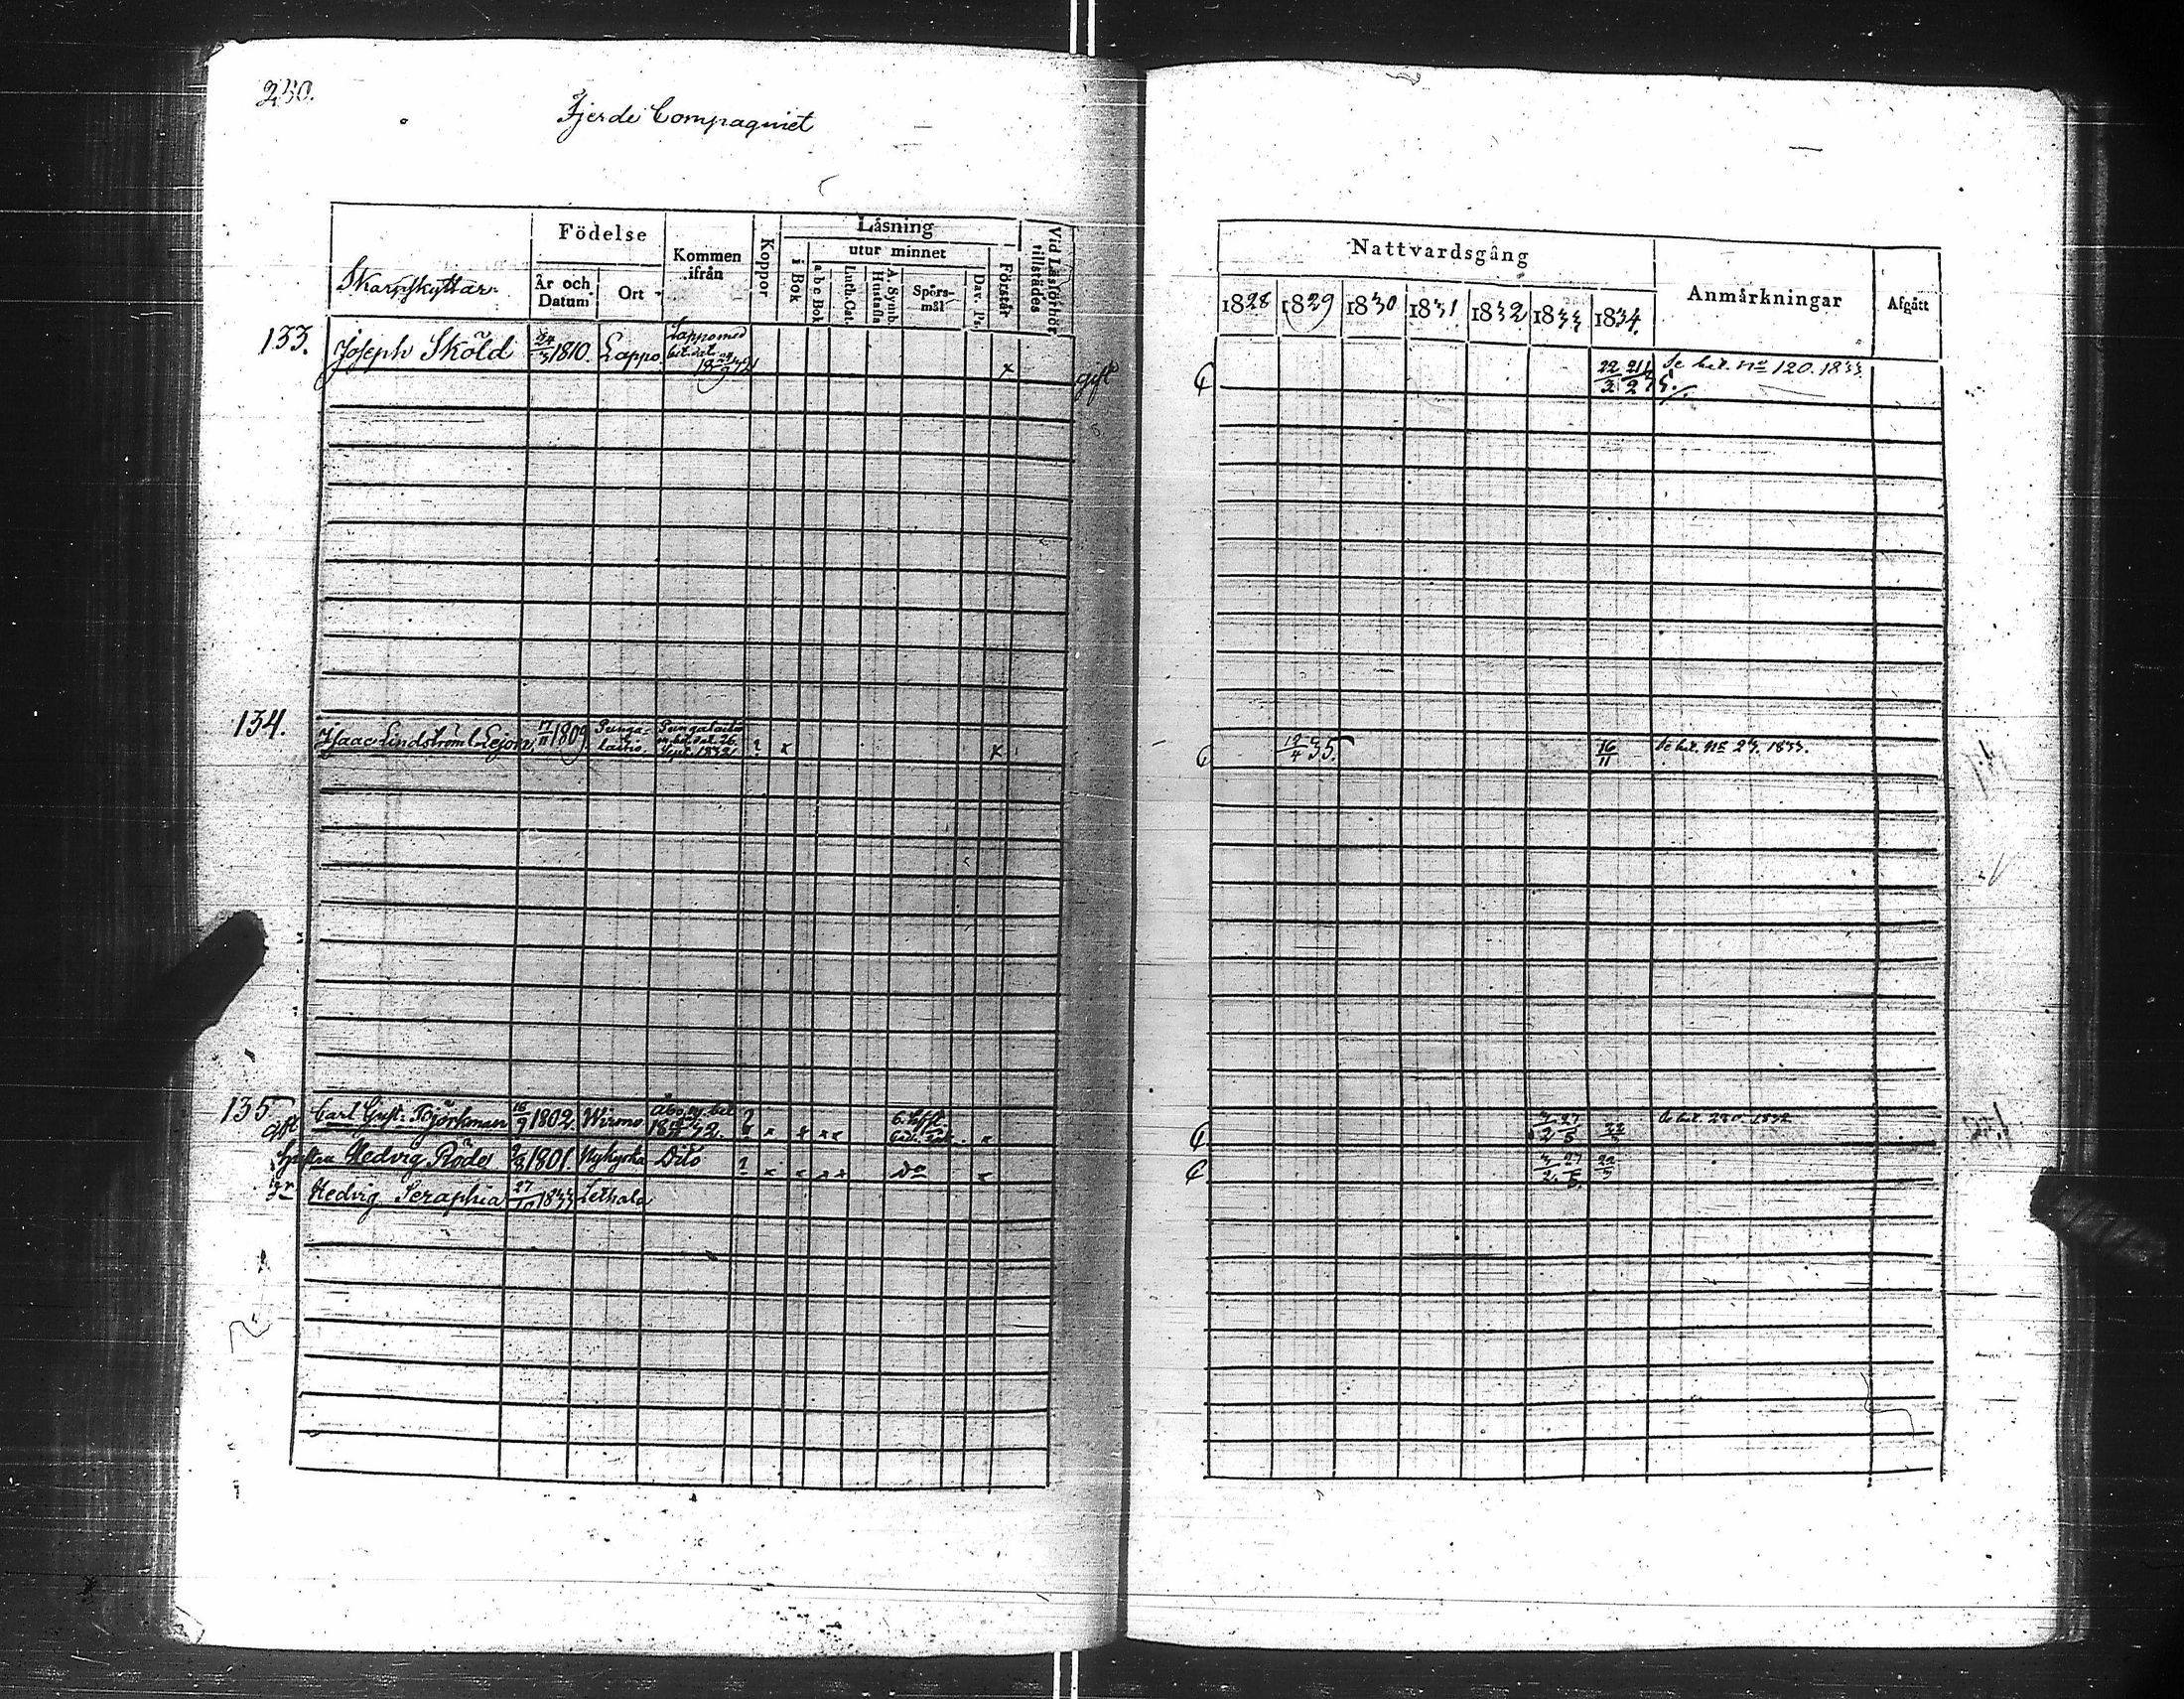 230.
Fjerde Compagniet
Skarpskyttar
Födelse
År och Datum
Ort
Kommen ifrån
Koppor
Läsning
i Bok
utur minnet
a b c Bok
Luth. Cat.
A. Symb. Hustafla
Spörsmål
Dav. Ps.
Förstår
Vid Läsförhör tillstädes
133. Joseph Sköld 24/3 1810. Lappo. Lappo med bet. dat. x gift
134. Isaac Lindström l. Lejon 17/11 1809 Pungalaitio Pungalaitio m. bet. dat. 26 Sept. 1832. x x
135 Carl Gust. Björkman 16/9 1802. Wirmo x x x x x
gift
Hustru Hedvig Röde 1801. Nykyrka Dito x x x x do x
Hedvig Seraphia 27/10 1833 Lethala
Nattvardsgång
1828 1829 1830 1831 1832 1833 1834.
Anmärkningar
Afgått
22/3 Se bet. no 120. 1833.
12/4 35. 16/11 Se bet. no 23. 1833.
27/5 Se bet. 230. 1832
27/5